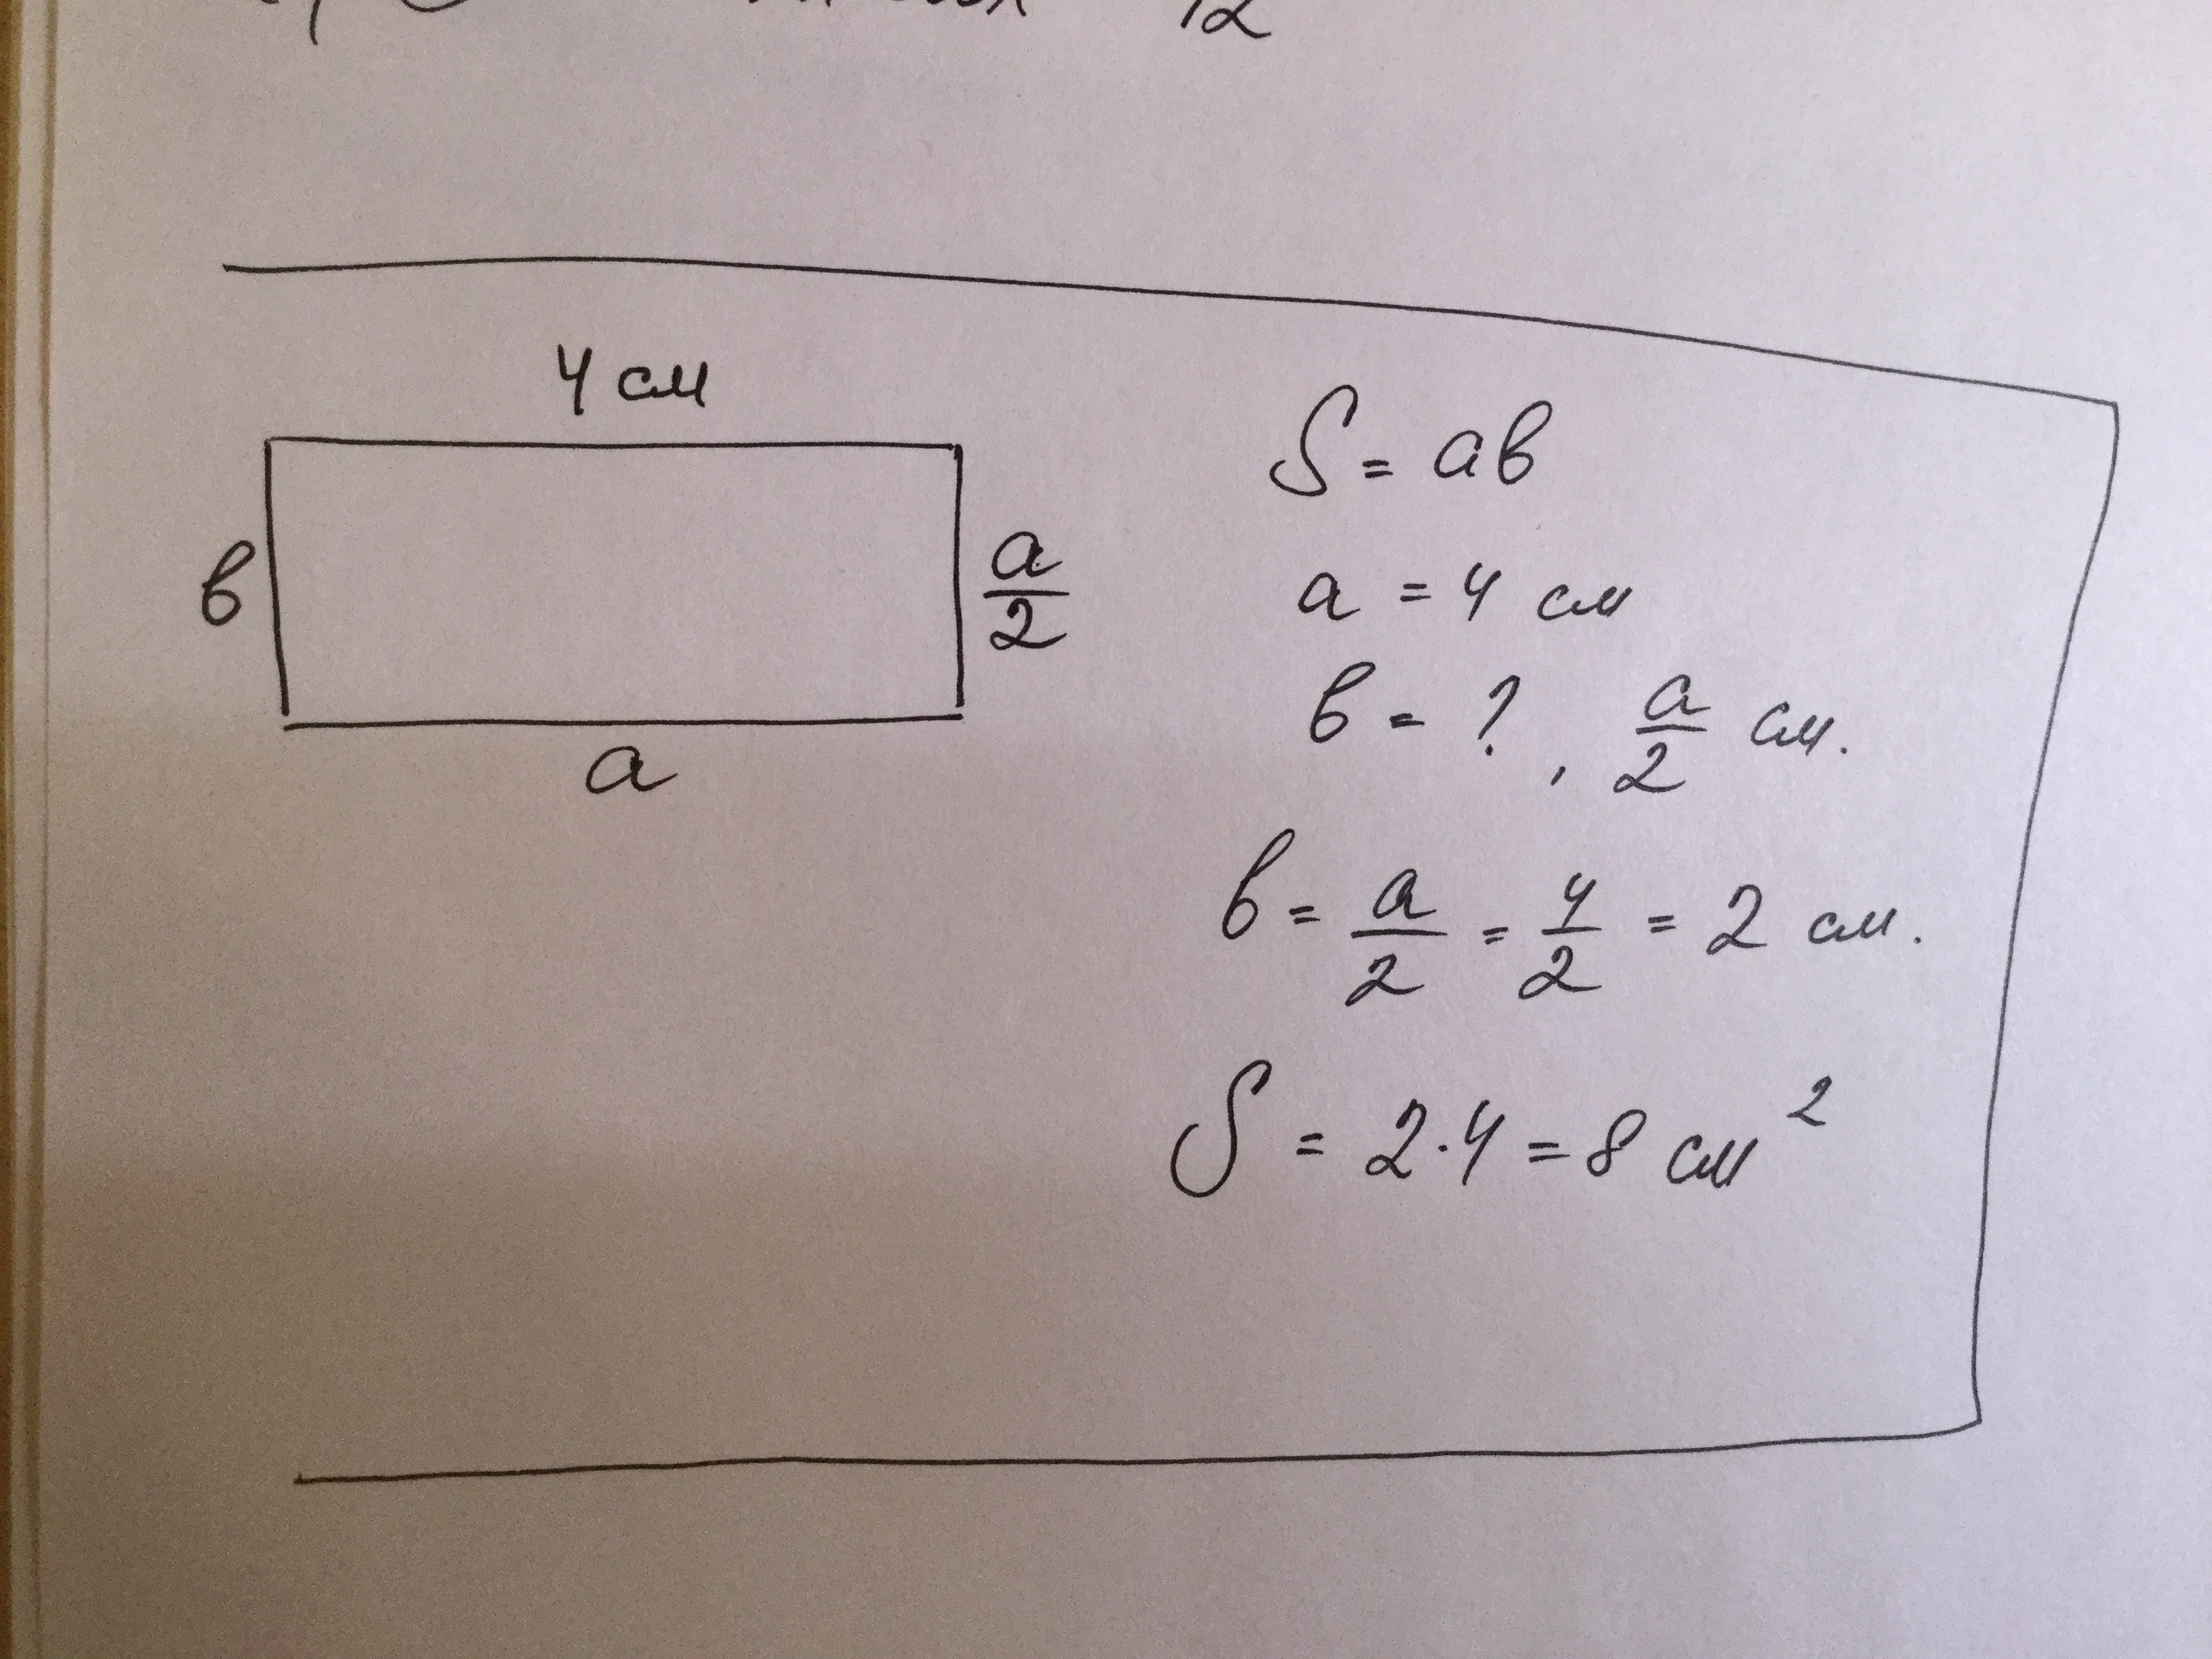 12
4 см
в
a/2
a
S = aв
a = 4 см
в = ? , a/2 см.
в = a/2 = 4/2 = 2 см.
S = 2·4 = 8 см²